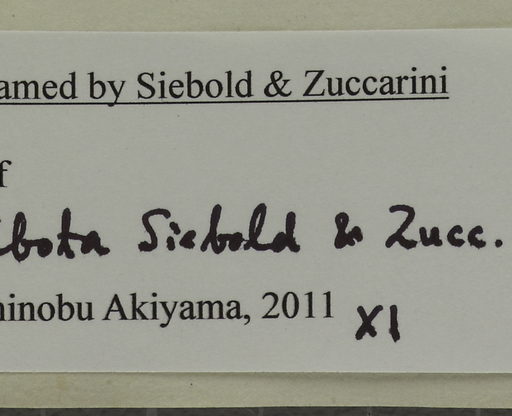 amed by Siebold & Zuccarini
f
bota Siebold & Zucc.
hinobu Akiyama, 2011 XI